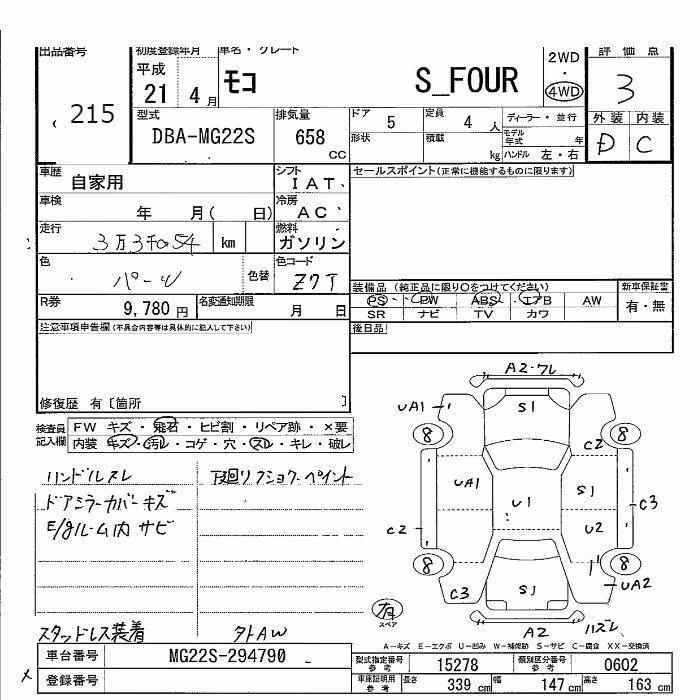 出品番号 初度登録年月 車名・グレード 評価点
215 平成 21 4月 モコ S_FOUR 2WD・4WD 3
型式 DBA-MG22S 排気量 658 CC ドア 5 定員 4 人 ディーラー・並行 外装 内装
形状 積載 kg モデル年式 年 ハンドル 左・右 D C
車歴 自家用 シフト IAT セールスポイント(正常に機能するものに限ります)
車検 年 月( 日) 冷房 AC
走行 3万3千054 km 燃料 ガソリン
色 パール 色替 色コード Z7T 装備品 (純正品に限り○をつけてください) 新車保証書
PS・PW ABS エアB AW 有・無
R券 9,780円 名変通知期限 月 日 SR ナビ TV カワ
注意事項申告欄(不具合内容等は具体的に記入して下さい) 後日品
修復歴 有〔箇所 〕
検査員記入欄 FW キズ・飛石・ヒビ割・リペア跡・×要
内装 キズ・汚レ・コゲ・穴・スレ・キレ・破レ
ハンドルスレ 下廻リ
ドアミラーカバーキズ
E/gルーム内サビ
スタッドレス装着 外AW
A2・ワレ
UA1 S1
8 8
C2
UA1 U1 S1 C3
C2 U2
8 8
C3 S1 UA2
有 スペア A2 ハズレ
A-キズ E-エクボ U-凹み W-補修跡 S-サビ C-腐食 XX-交換済
車台番号 MG22S-294790 型式指定番号 参考 15278 類別区分番号 参考 0602
登録番号 車庫証明用 参考 長さ 339 cm 幅 147 cm 高さ 163 cm